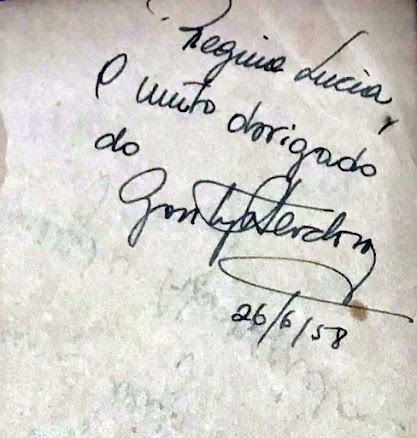 Regina Lucia,
O muito obrigado
do
26/6/58